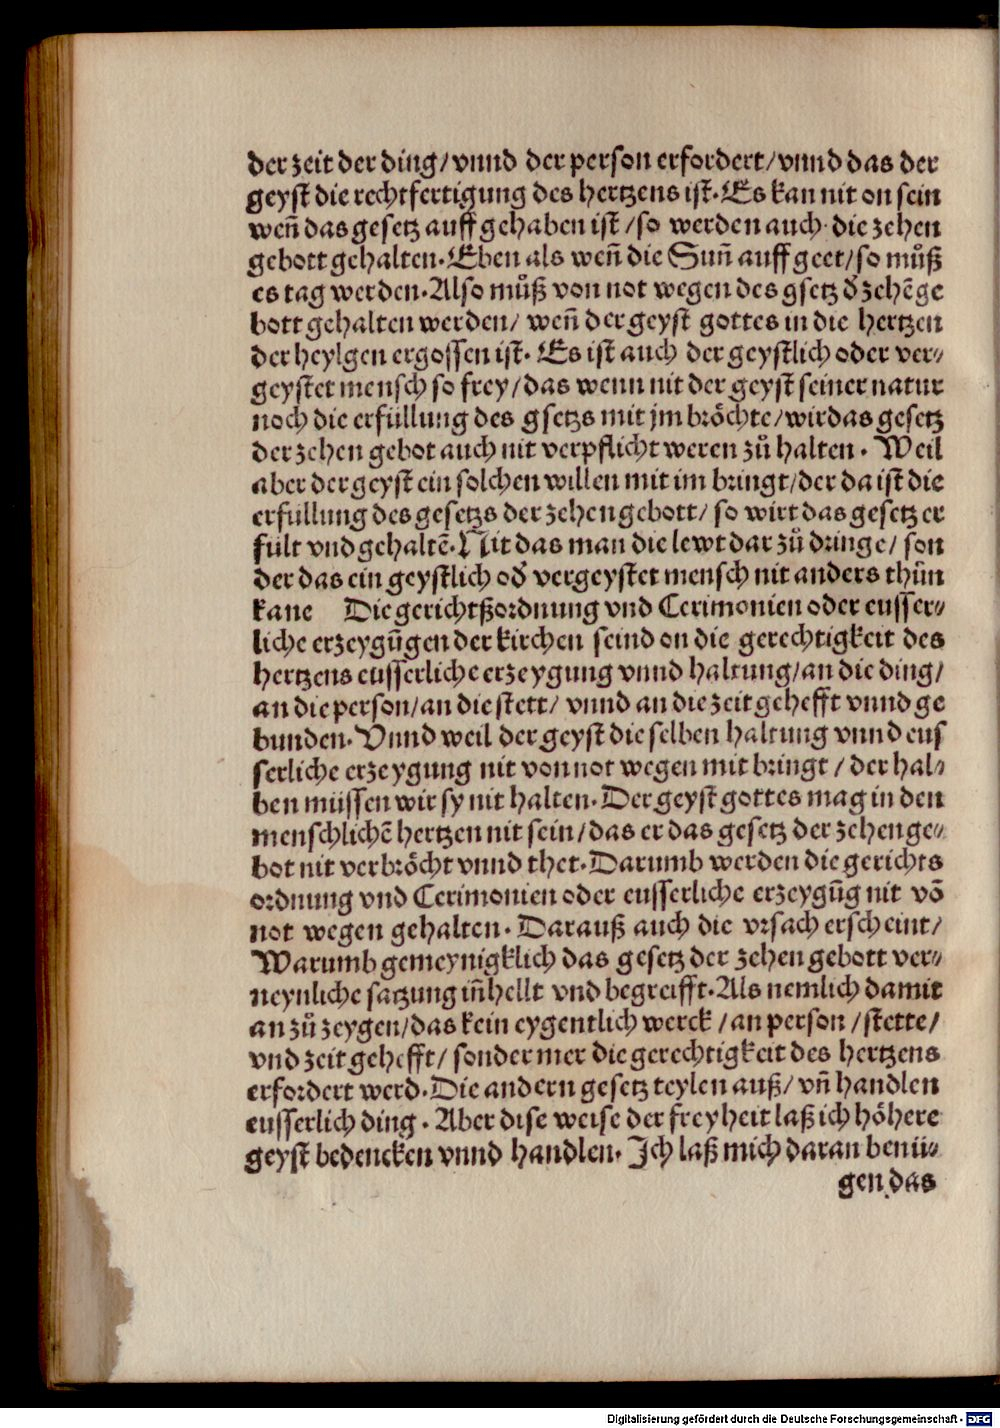 der zeit der ding/ vnnd der person erfordert/ vnnd das der
geyst die rechtfertigung des hertzens ist. Es kan nit on sein
weñ das gesetz auff gehaben ist/ so werden auch die zehen
gebott gehalten. Eben als weñ die Suñ auff geet/ so můß
es tag werden. Also můß von not wegen des gsetz d̕ zehẽ ge
bott gehalten werden/ weñ der geyst gottes in die hertzen
der heylgen ergossen ist. Es ist auch der geystlich oder ver⸗
geystet mensch so frey/ das wenn nit der geyst seiner natur
noch die erfüllung des gsetzs mit jm brôchte/ wir das gesetz
der zehen gebot auch nit verpflicht weren zů halten. Weil
aber der geyst ein solchen willen mit im bringt/ der da ist die
erfüllung des gesetzs der zehen gebott/ so wirt das gesetz er
fült vnd gehaltẽ. Nit das man die lewt dar zů dringe/ son
der das ein geystlich od̕ vergeystet mensch nit anders thůn
kane Die gerichtßordnung vnd Cerimonien oder eusser⸗
liche erzeygũgen der kirchen seind on die gerechtigkeit des
hertzens eusserliche erzeygung vnnd haltung/ an die ding/
an die person/ an die stett/ vnnd an die zeit gehefft vnnd ge
bunden. Vnnd weil der geyst die selben haltung vnnd eus
serliche erzeygung nit von not wegen mit bringt/ der hal⸗
ben müssen wir sy nit halten. Der geyst gottes mag in den
menschlichẽ hertzen nit sein/ das er das gesetz der zehen ge⸗
bot nit verbrôcht vnnd thet. Darumb werden die gerichts
ordnung vnd Cerimonien oder eusserliche erzeygũg nit võ
not wegen gehalten. Darauß auch die vrsach erscheint/
Warumb gemeynigklich das gesetz der zehen gebott ver⸗
neynliche satzung iñhellt vnd begreifft. Als nemlich damit
an zů zeygen/ das kein eygentlich werck/ an person/ stette/
vnd zeit gehefft/ sonder mer die gerechtigkeit des hertzens
erfordert werd. Die andern gesetz teylen auß/ vñ handlen
eusserlich ding. Aber dise weise der freyheit laß ich hôhere
geyst bedencken vnnd handlen. Ich laß mich daran benü⸗
gen das
Digitalisierung gefördert durch die Deutsche Forschungsgemeinschaft - DFG